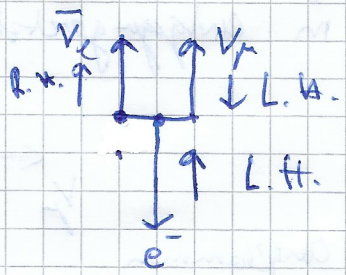 ν̄e νμ
R.H. L.H.
L.H.
e⁻